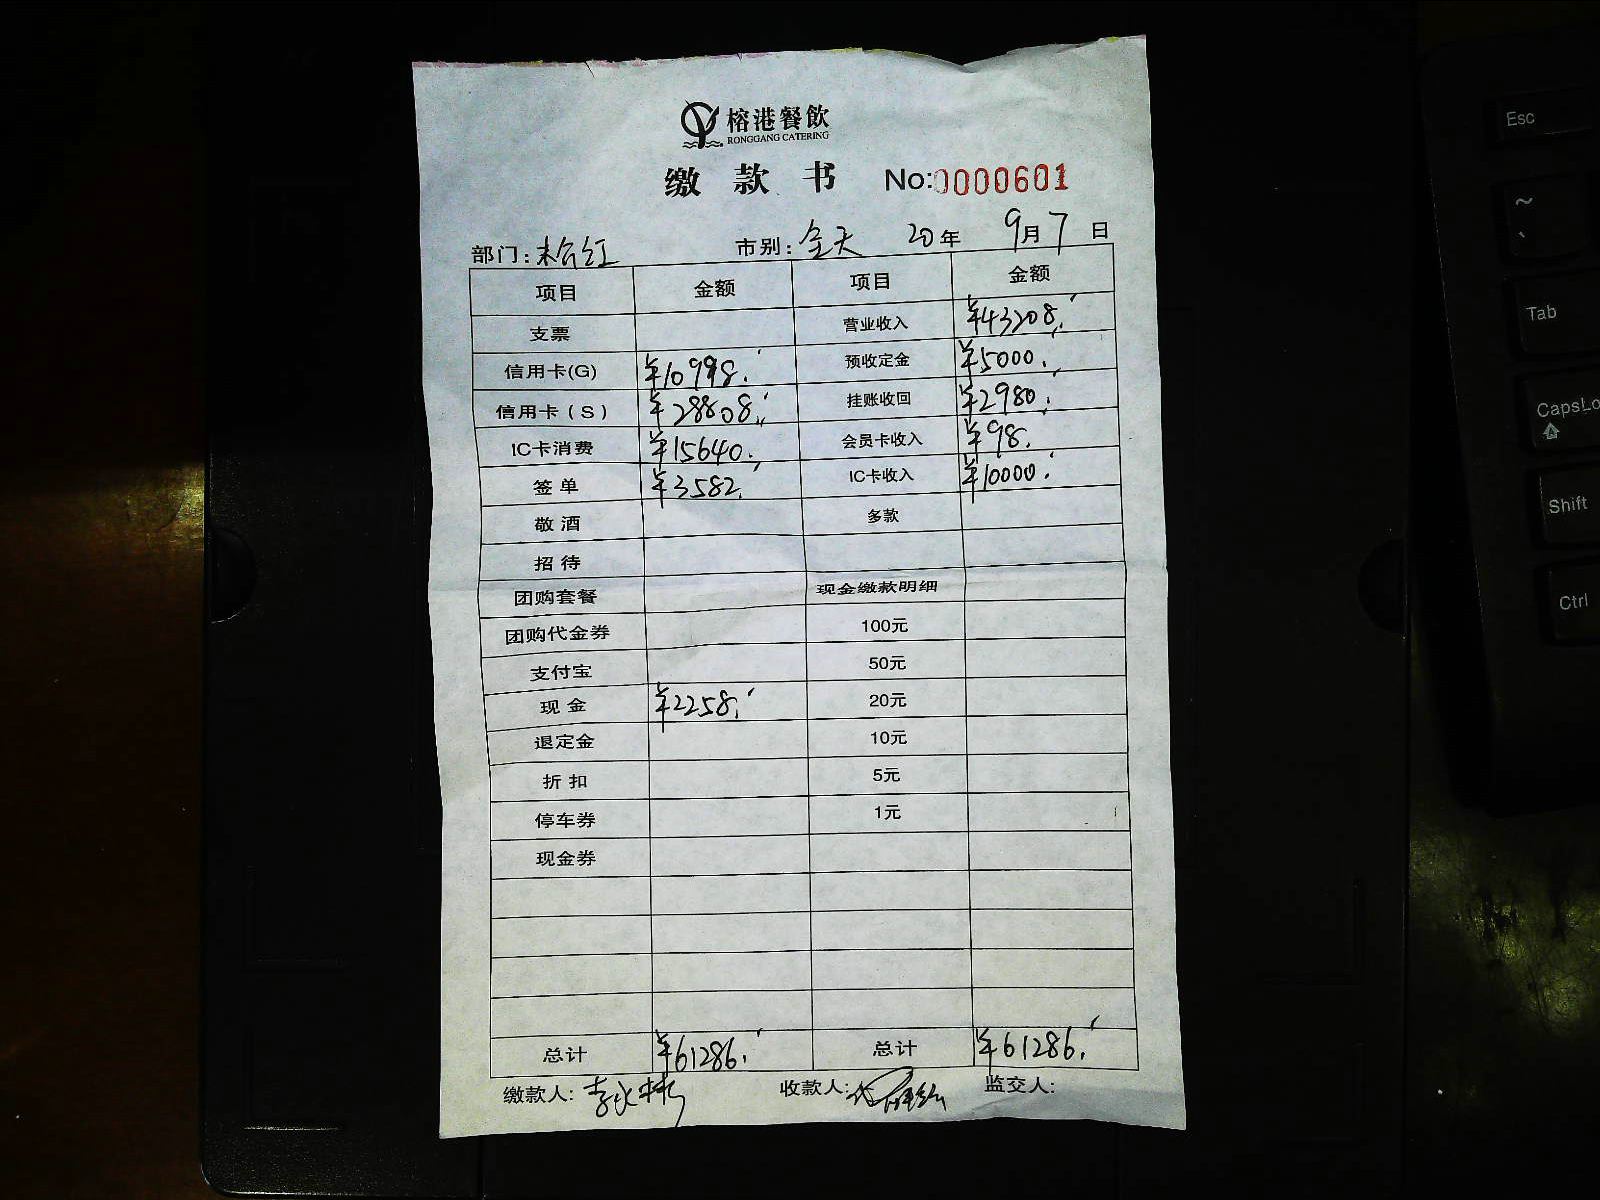 榕港餐飲
RONGGANG CATERING
缴款书 No:0000601
部门: 市别:全天 20年 9月7日
项目 金额 项目 金额
支票 营业收入 ¥43208.
信用卡(G) ¥10998. 预收定金 ¥5000.
信用卡(S) ¥28808. 挂账收回 ¥2980.
IC卡消费 ¥15640. 会员卡收入 ¥98.
签单 ¥3582. IC卡收入 ¥10000.
敬酒 多款
招待
团购套餐 现金缴款明细
团购代金券 100元
支付宝 50元
现金 ¥2258. 20元
退定金 10元
折扣 5元
停车券 1元
现金券
总计 ¥61286. 总计 ¥61286.
缴款人: 收款人: 监交人:
Esc
~
Tab
CapsLo
Shift
Ctrl